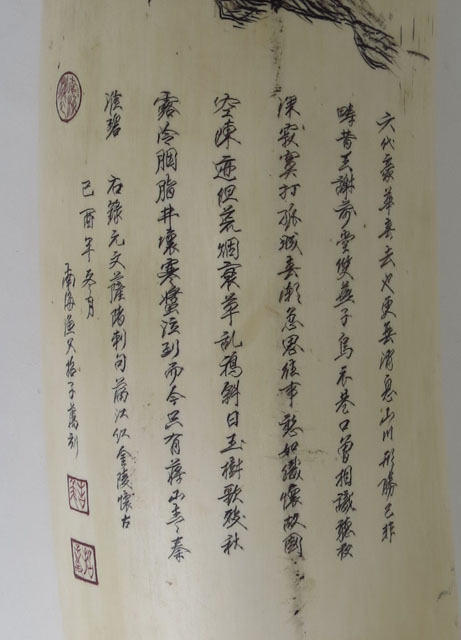 六代豪華春去也更無消息山川形勝已非
疇昔王謝前堂雙燕子烏衣巷口曾相識聽夜
深寂寞打孤城春潮急思往事愁如織懷故國
空陳迹但荒烟衰草乱鴉斜日玉樹歌殘秋
露冷胭脂井壞寒螿泣到而今只有蔣山青秦
淮碧 右錄元文薩都刺句滿江紅金陵懷古
己酉年冬月
南海漁父子萬刻